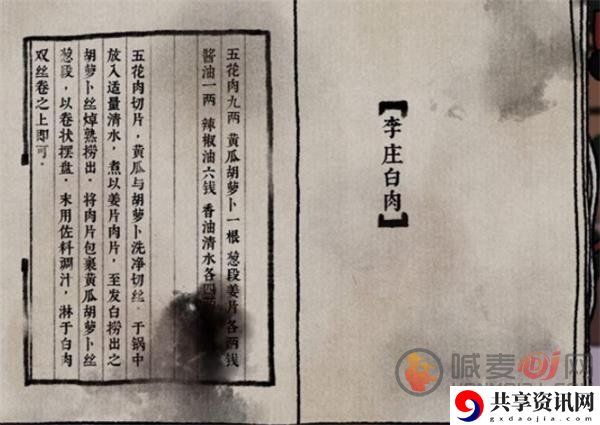 【李庄白肉】
五花肉九两 黄瓜胡萝卜一根 葱段姜片各两钱
酱油一两 辣椒油六钱 香油清水各四
五花肉切片，黄瓜与胡萝卜洗净切丝．于锅中
放入适量清水，煮以姜片肉片，至发白捞出之
胡萝卜丝焯熟捞出．将肉片包裹黄瓜胡萝卜丝
葱段，以卷状摆盘．末用佐料调汁，淋于白肉
双丝卷之上即可．
喊麦 网
共享资讯网
www.gxdaojia.com